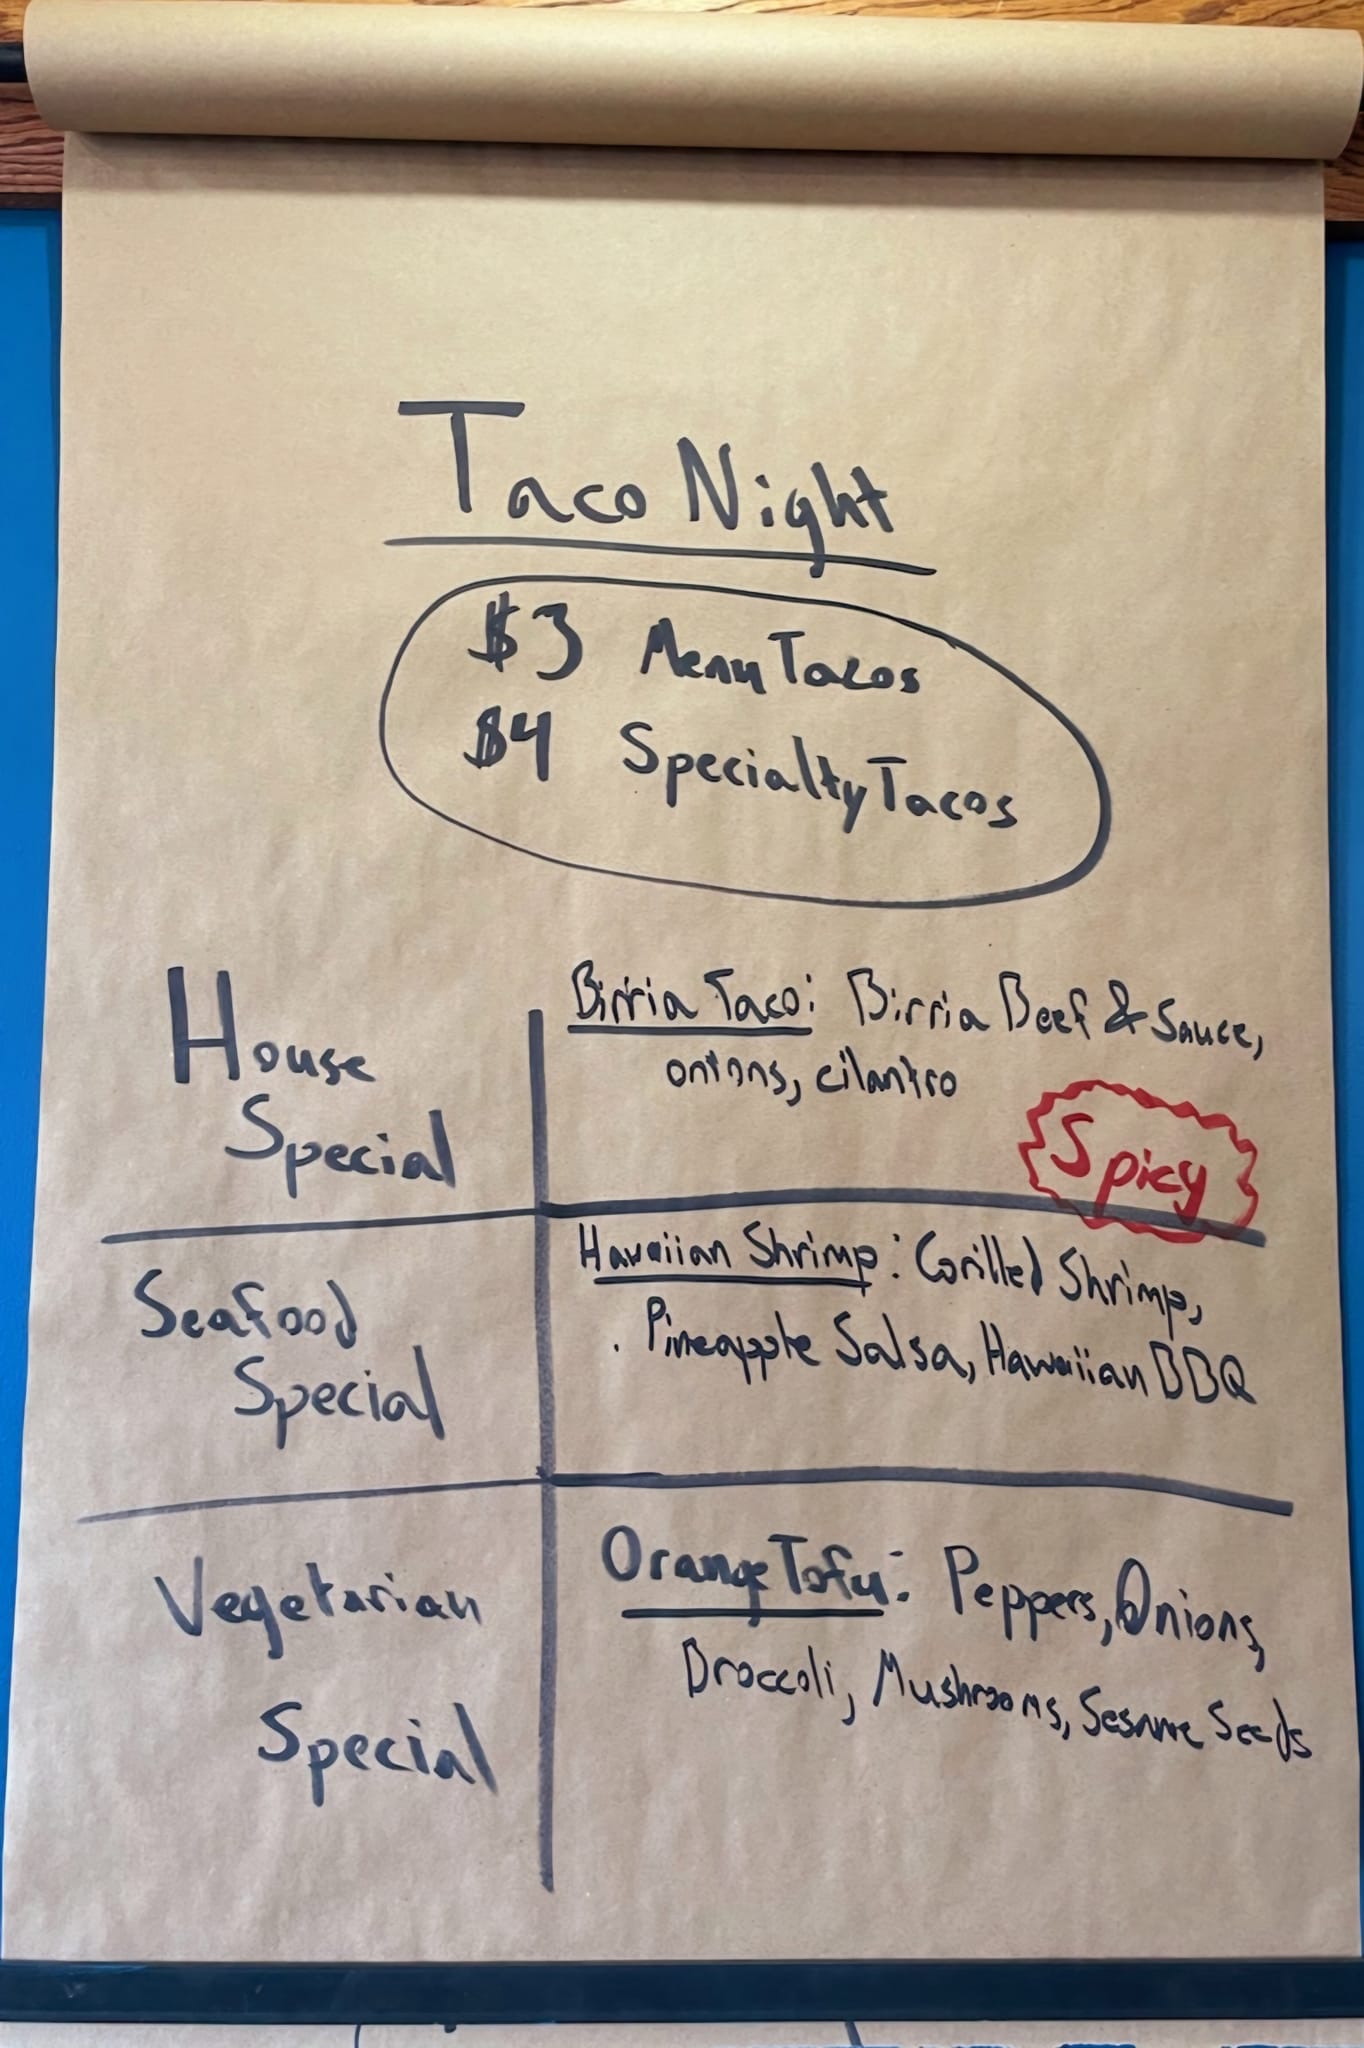 Taco Night
$3 Menu Tacos
$4 Specialty Tacos
House
Special
Birria Taco: Birria Beef & Sauce,
onions, cilantro
Spicy
Seafood
Special
Hawaiian Shrimp: Grilled Shrimp,
Pineapple Salsa, Hawaiian BBQ
Vegetarian
Special
Orange Tofu: Peppers, Onions,
Broccoli, Mushrooms, Sesame Seeds